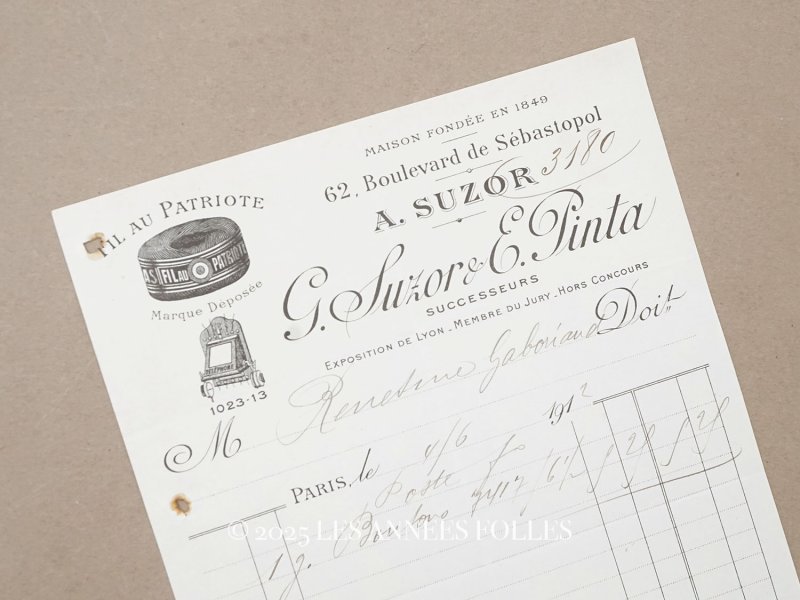 MAISON FONDÉE EN 1849
62, Boulevard de Sébastopol
3180
A. SUZOR
G. Suzor & E. Pinta
SUCCESSEURS
EXPOSITION DE LYON - MEMBRE DU JURY - HORS CONCOURS
FIL AU PATRIOTE
AS FIL AU PATRIOTE
Marque Déposée
TÉLÉPHONE
1023-13
M Doit
PARIS, le 4/6 1912
Poste
1 g. Boutons
© 2025 LES ANNÉES FOLLES